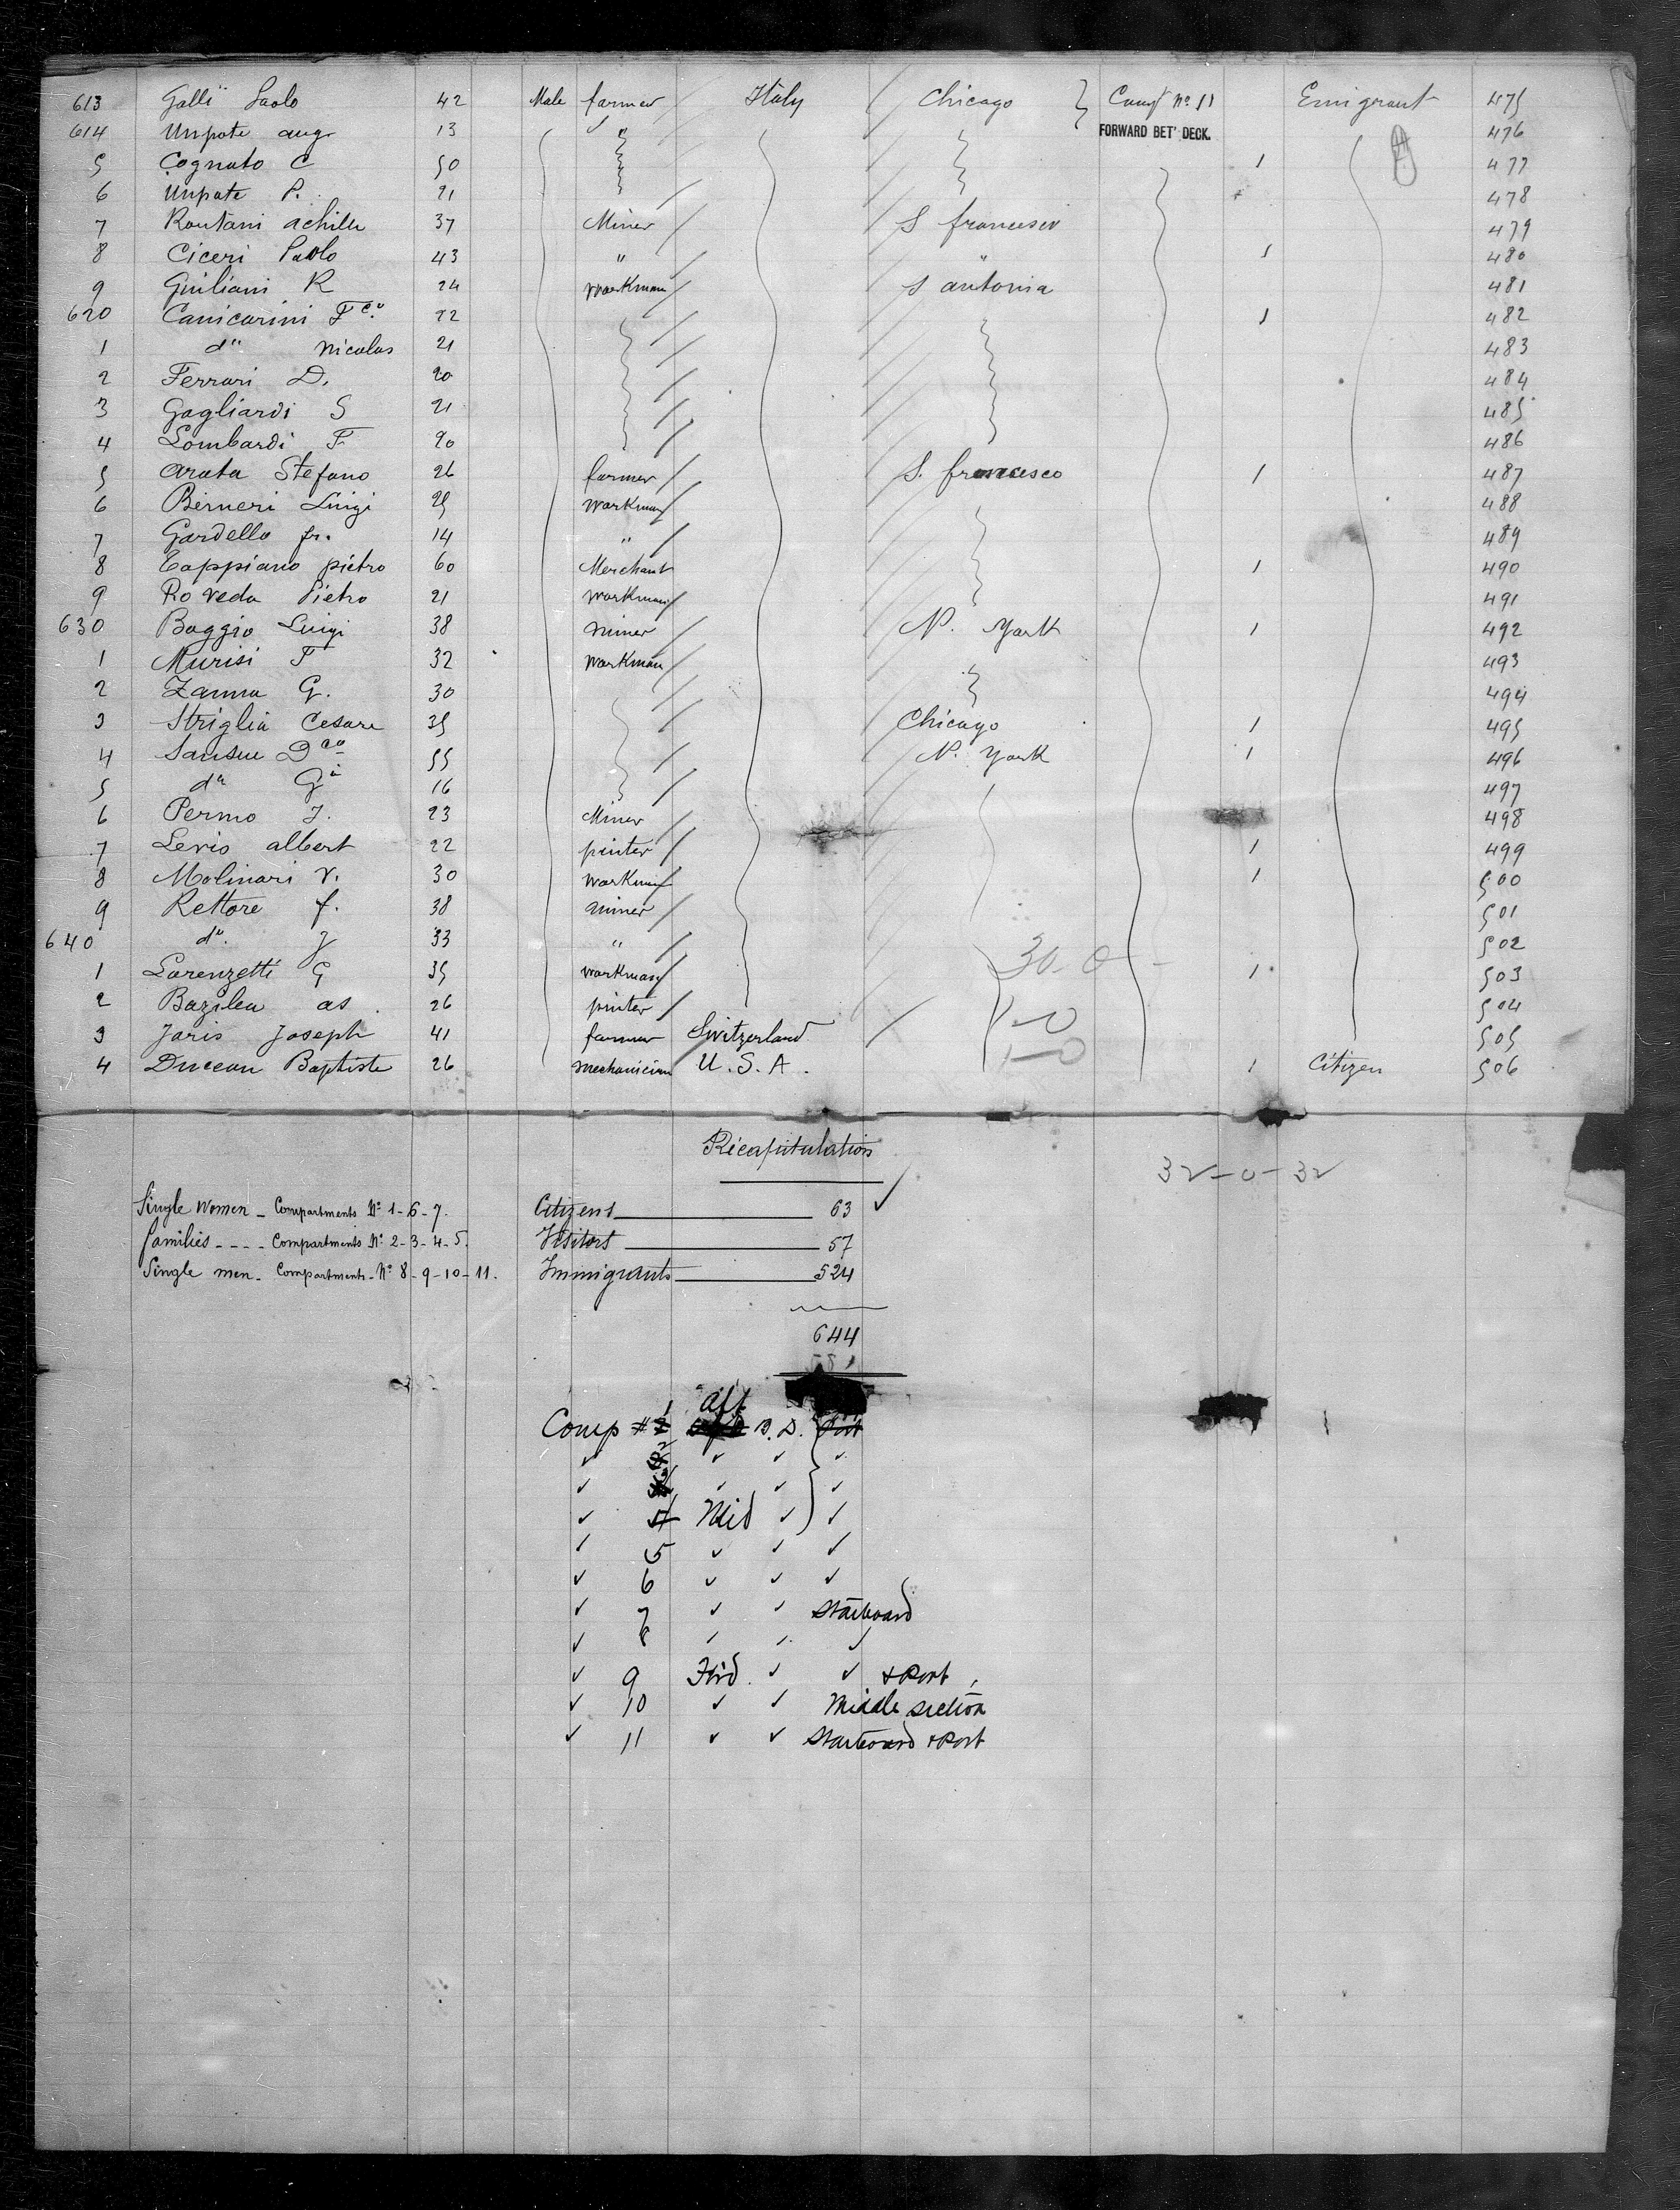 613 Galli Paolo 42 Male farmer Italy Chicago Campt No 11 Emigrant 475
614 Unpote aug 13 " FORWARD BET' DECK. 476
5 Cognato C 50 1 477
6 Unpate P. 21 478
7 Rontani achille 37 Miner S francisco 479
8 Ciceri Paolo 43 " " 1 480
9 Giuliani R 24 workman S antonia 481
620 Canicarini Fco 22 1 482
1 do nicolas 21 483
2 Ferrari D. 20 484
3 Gagliardi S 21 485
4 Lombardi F 20 486
5 arata Stefano 26 farmer S. francisco 1 487
6 Berneri Luigi 25 workman 488
7 Gardella fr. 14 " 489
8 Cappiano pietro 60 Merchant 1 490
9 Roveda Pietro 21 workman 491
630 Baggio Luigi 38 miner N. York 1 492
1 Murisi F 32 workman 493
2 Zanna G. 30 494
3 Striglia Cesare 35 Chicago 1 495
4 Sansue Dco 55 N. York 1 496
5 do Ga 16 497
6 Permo J. 23 Miner 498
7 Levis albert 22 painter 1 499
8 Molinari V. 30 workman 1 500
9 Rettore f. 38 miner 501
640 do. J 33 " 502
1 Lorenzetti G 35 workman 30-0- 1 503
2 Bazilea as. 26 printer 1-0 504
3 Joris Joseph 41 farmer Switzerland 1-0 505
4 Duceau Baptiste 26 mechanician U.S.A. 1 Citizen 506
Récapitulation
32-0-32
Single Women - Compartments No 1-6-7. Citizens 63 ✓
families - - - - Compartments No 2-3-4-5. Visitors 57
Single men - Compartments - No 8-9-10-11. Immigrants 524
644
Comp # 1 aft B. D. Port
✓ 2 ✓ ✓ ✓
✓ 3 ✓ ✓ ✓
✓ 4 Mid ✓ ✓
✓ 5 ✓ ✓ ✓
✓ 6 ✓ ✓ ✓
✓ 7 ✓ ✓ Starboard
✓ 8 ✓ ✓ ✓
✓ 9 Fwd. ✓ ✓ & Port
✓ 10 ✓ ✓ Middle section
✓ 11 ✓ ✓ Starboard & Port